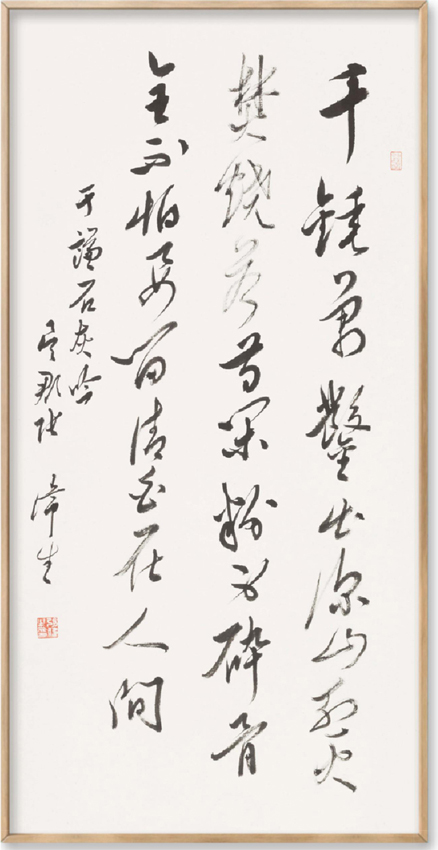 千錘萬鑿出深山烈火
焚燒若等閑粉身碎骨
全不怕要留清白在人間
于謙石灰吟
吳郡張偉生